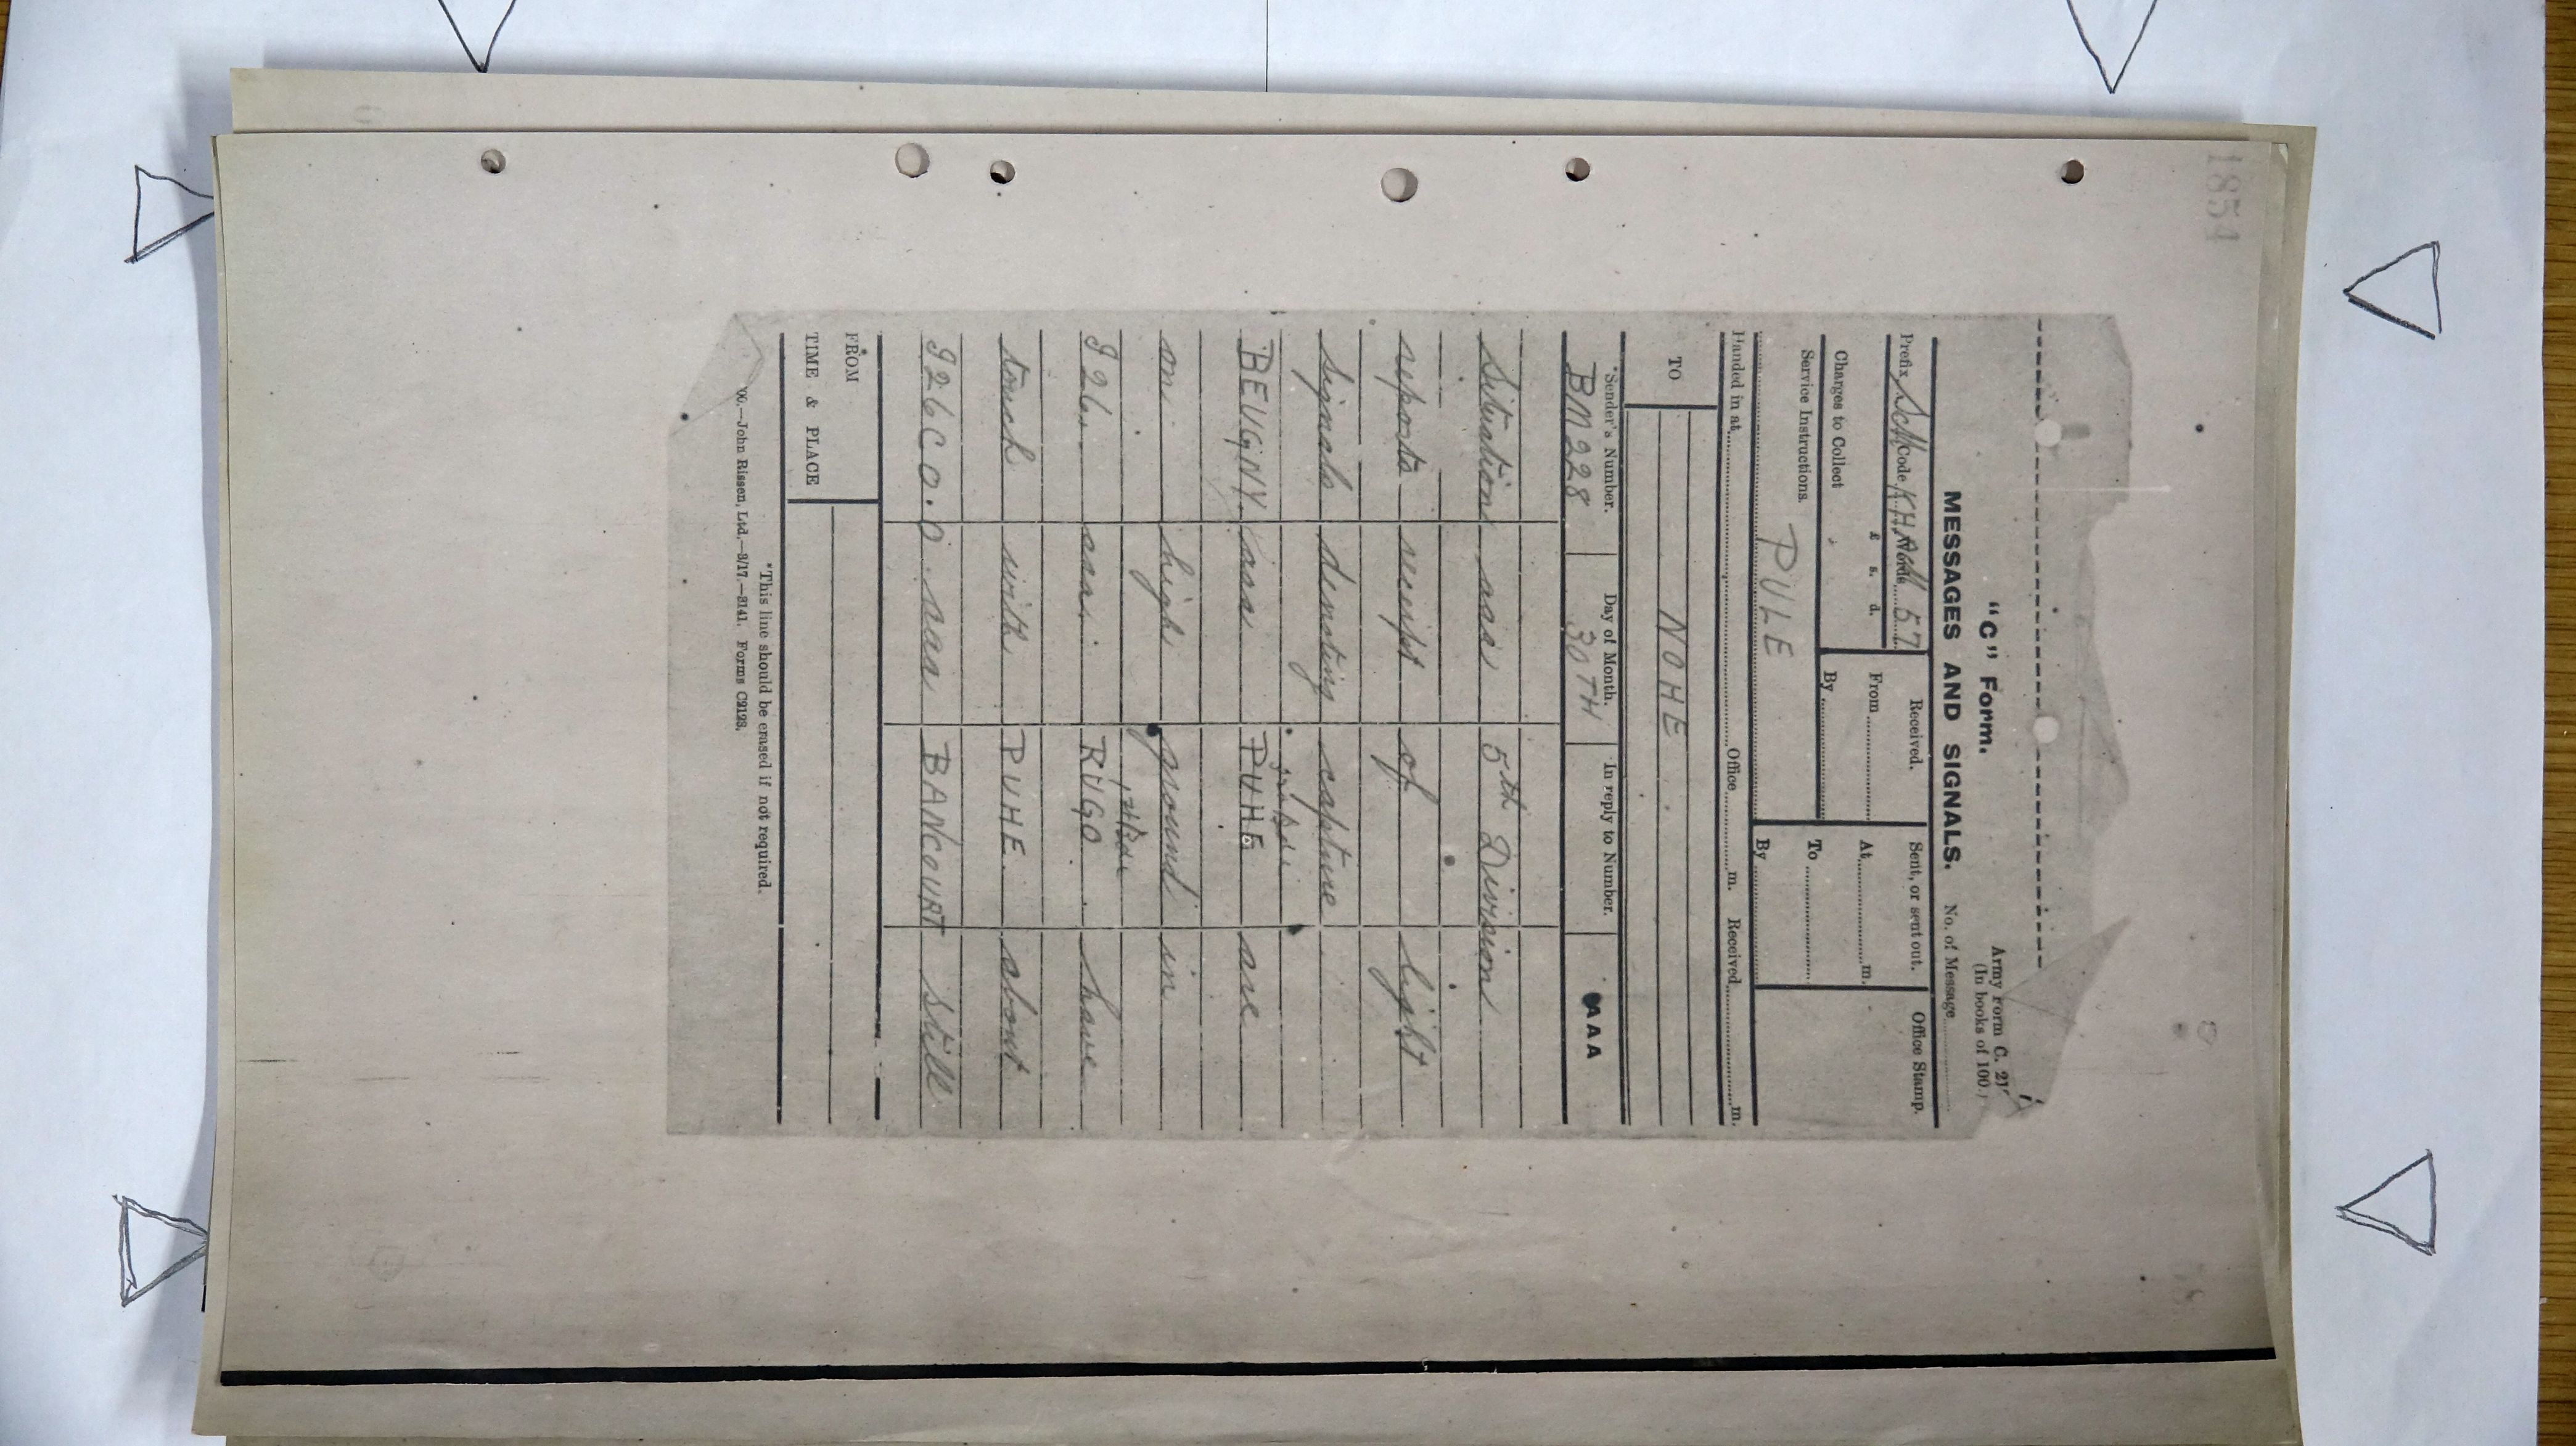 1854
"C" Form.
Army Form C. 21
(In books of 100.)
MESSAGES AND SIGNALS.
No. of Message
Prefix SM Code KHA 57
Received.
Sent, or sent out.
Office Stamp.
£ s. d.
From
At m.
Charges to Collect
By
To
Service Instructions.
PULE
By
Handed in at Office m. Received m.
TO
NOHE
*Sender's Number.
Day of Month.
In reply to Number.
AAA
BM 228
30TH
Situation aaa 5th Division
reports receipt of light
signals denoting capture
BEUGNY. aaa PUHE are
on high ground in
I 26. aaa RUGO have
touch with PUHE about
I26C0.0 aaa BANCOURT still
FROM
TIME & PLACE
*This line should be erased if not required.
00.—John Rissen, Ltd.—3/17.—3141. Forms C2123.